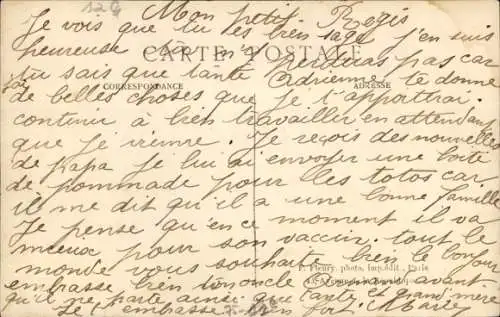 126
Mon petit Regis
Je vois que tu es bien sage j'en suis
heureuse
CARTE POSTALE
perdras pas car
tu sais que tante Adrienne te donne
CORRESPONDANCE
ADRESSE
de belles choses que je t'apporterai.
continue à bien travailler en attendant
que je vienne. Je reçois des nouvelles
de Papa je lui ai envoyer une boîte
de pommade pour les totos car
il me dit qu'il a une bonne famille
Je pense qu'en ce moment il va
mieux pour son vaccin. tout le
monde vous souhaite bien le bonjour
P. Fleury, photo, imp. édit. - Paris
embrasse bien ton oncle avant
qu'il ne parte ainsi que tante et grand'mère
Je t'embrasse bien fort.